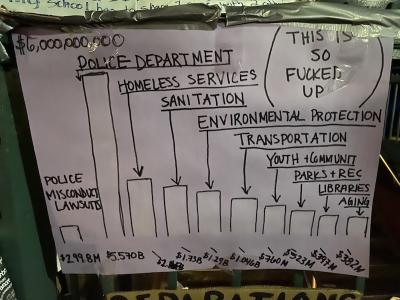 $6,000,000,000
POLICE DEPARTMENT
HOMELESS SERVICES
SANITATION
ENVIRONMENTAL PROTECTION
TRANSPORTATION
YOUTH + COMMUNIT
PARKS + REC
LIBRARIES
AGING
THIS IS
SO
FUCKED
UP
POLICE
MISCONDUCT
LAWSUITS
$299.8M
$5.570B
$1.75B
$1.29B
$1.046B
$760M
$523M
$397M
$382M